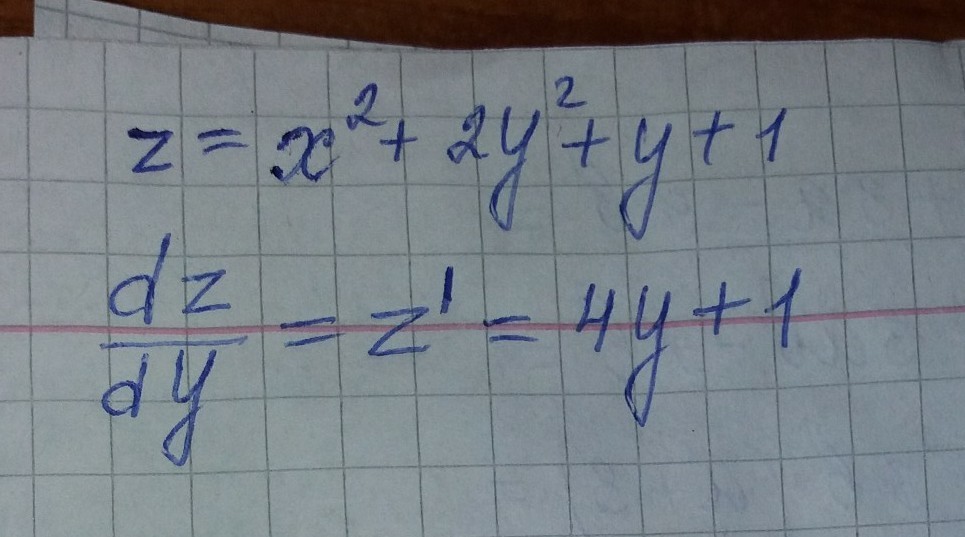 z = x² + 2y² + y + 1
dz/dy = z' = 4y + 1